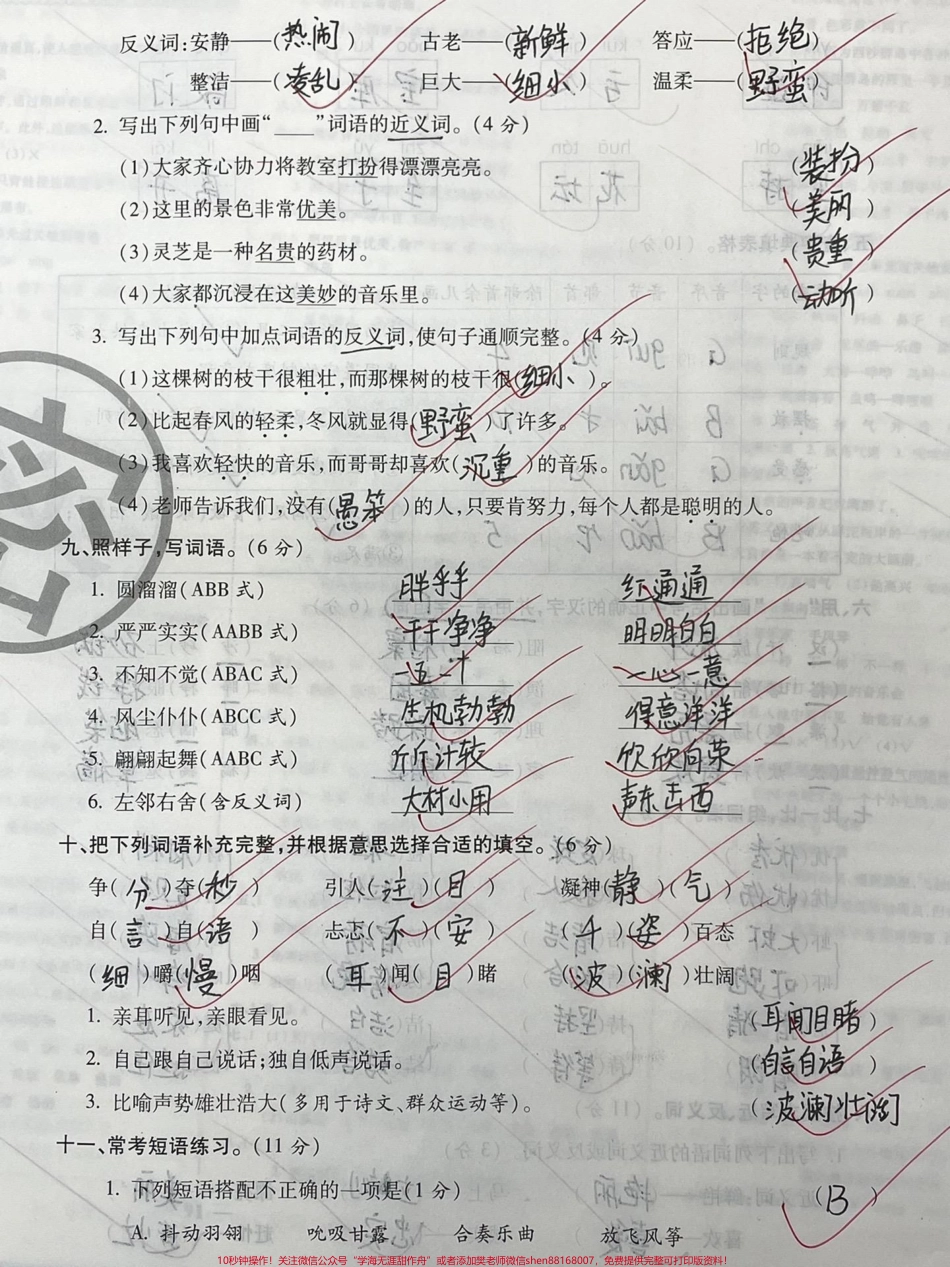 反义词:安静——(热闹) 古老——(新鲜) 答应——(拒绝)
整洁——(凌乱) 巨大——(细小) 温柔——(野蛮)
2. 写出下列句中画“____”词语的近义词。(4分)
(1)大家齐心协力将教室打扮得漂漂亮亮。 (装扮)
(2)这里的景色非常优美。 (美丽)
(3)灵芝是一种名贵的药材。 (贵重)
(4)大家都沉浸在这美妙的音乐里。 (动听)
3. 写出下列句中加点词语的反义词,使句子通顺完整。(4分)
(1)这棵树的枝干很粗壮,而那棵树的枝干很(细小)。
(2)比起春风的轻柔,冬风就显得(野蛮)了许多。
(3)我喜欢轻快的音乐,而哥哥却喜欢(沉重)的音乐。
(4)老师告诉我们,没有(愚笨)的人,只要肯努力,每个人都是聪明的人。
九、照样子,写词语。(6分)
1. 圆溜溜(ABB式) 胖乎乎 红通通
2. 严严实实(AABB式) 干干净净 明明白白
3. 不知不觉(ABAC式) 一五一十 一心一意
4. 风尘仆仆(ABCC式) 生机勃勃 得意洋洋
5. 翩翩起舞(AABC式) 斤斤计较 欣欣向荣
6. 左邻右舍(含反义词) 大材小用 声东击西
十、把下列词语补充完整,并根据意思选择合适的填空。(6分)
争(分)夺(秒) 引人(注)(目) 凝神(静)(气)
自(言)自(语) 忐忑(不)(安) (千)(姿)百态
(细)嚼(慢)咽 (耳)闻(目)睹 (波)(澜)壮阔
1. 亲耳听见,亲眼看见。 (耳闻目睹)
2. 自己跟自己说话;独自低声说话。 (自言自语)
3. 比喻声势雄壮浩大(多用于诗文、群众运动等)。 (波澜壮阔)
十一、常考短语练习。(11分)
1. 下列短语搭配不正确的一项是(1分) (B)
A. 抖动羽翎 吮吸甘露 合奏乐曲 放飞风筝
10秒钟操作!关注微信公众号“学海无涯甜作舟”或者添加樊老师微信shen88168007,免费提供完整可打印版资料!